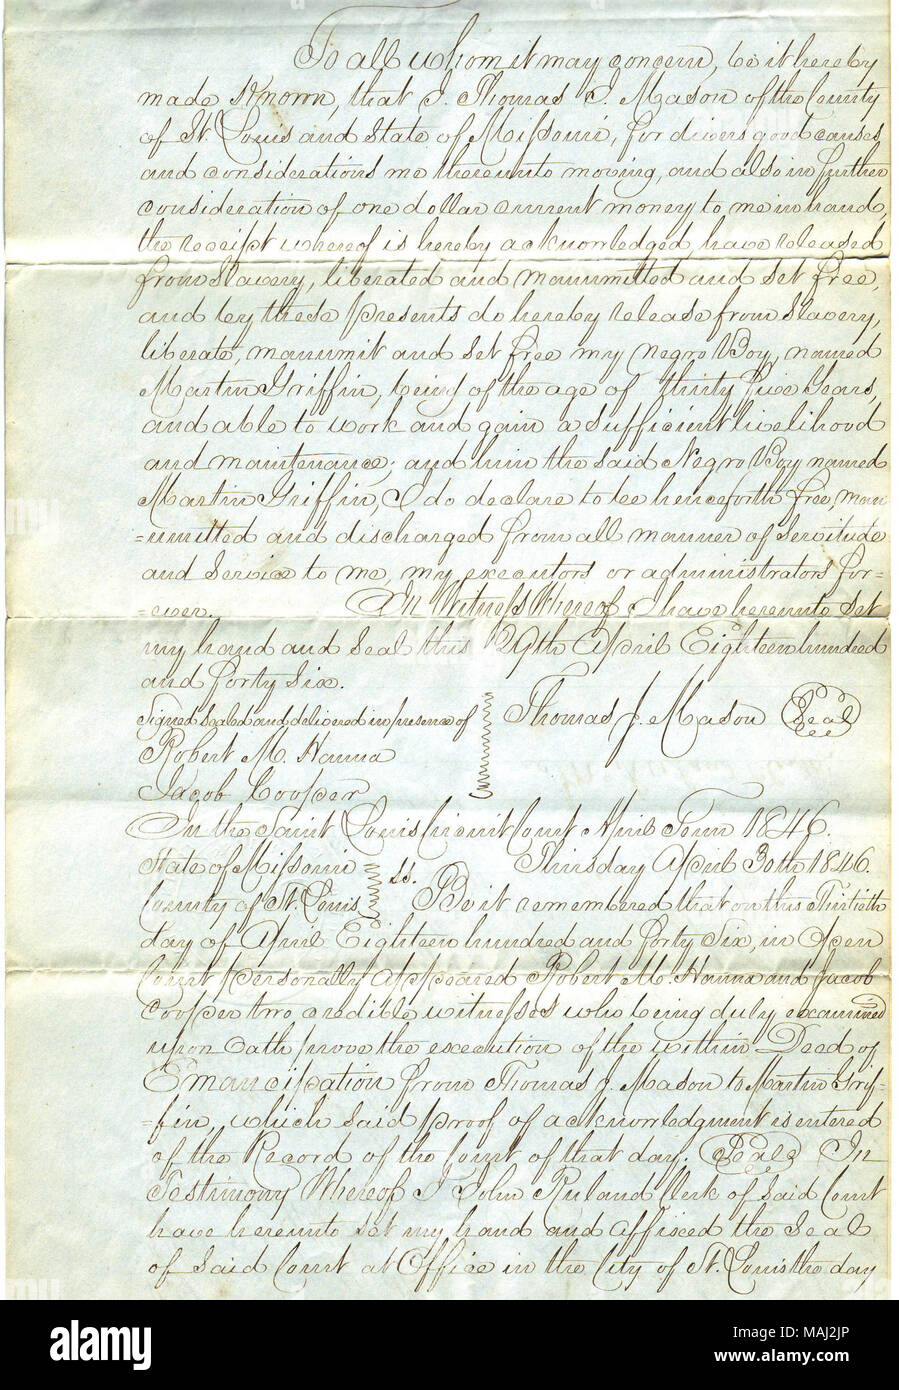 To all whom it may concern, be it hereby
made Known, that I, Thomas J. Mason of the County
of St. Louis and State of Missouri, for divers good causes
and considerations me thereunto moving, and also in further
consideration of one dollar current money to me in hand,
the receipt whereof is hereby acknowledged, have released
from Slavery, liberated and manumitted and set free,
and by these presents do hereby release from Slavery,
liberate, manumit and set free my negro Boy, named
Martin Griffin, being of the age of thirty five Years,
and able to work and gain a sufficient livelihood
and maintenance; and him the said Negro Boy named
Martin Griffin, I do declare to be henceforth free, man
=umitted and discharged from all manner of Servitude
and Service to me, my executors or administrators for-
=ever. In Witness Whereof I have hereunto set
my hand and seal this 29th April Eighteen hundred
and forty six.
Signed sealed and delivered in presence of Thomas J. Mason Seal
Robert M. Hanna
Jacob Cooper
In the Saint Louis Circuit Court April Term 1846.
State of Missouri Thursday April 30th 1846.
County of St. Louis ss. Be it remembered that on this Thirtieth
day of April Eighteen hundred and forty Six, in Open
Court personally Appeared Robert M. Hanna and Jacob
Cooper two credible witnesses who being duly examined
upon Oath prove the execution of the within Deed of
Emancipation from Thomas J. Mason to Martin Grif-
=fin, which said proof of acknowledgment is entered
of the Record of the Court of that day. Seal In
Testimony Whereof I John Ruland Clerk of Said Court
have hereunto set my hand and affixed the Seal
of Said Court at Office in the City of St. Louis the day
alamy
Image ID: MAJ2JP
www.alamy.com